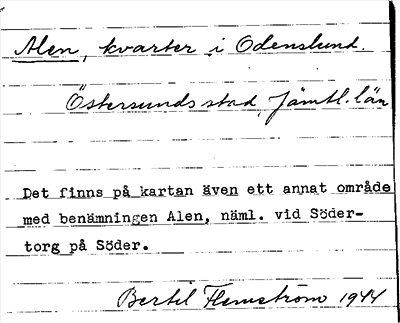 Alen, kvarter i Odenslund.
Östersunds stad, Jämtl. län
Det finns på kartan även ett annat område
med benämningen Alen, näml. vid Söder-
torg på Söder.
Bertil Flemström 1944